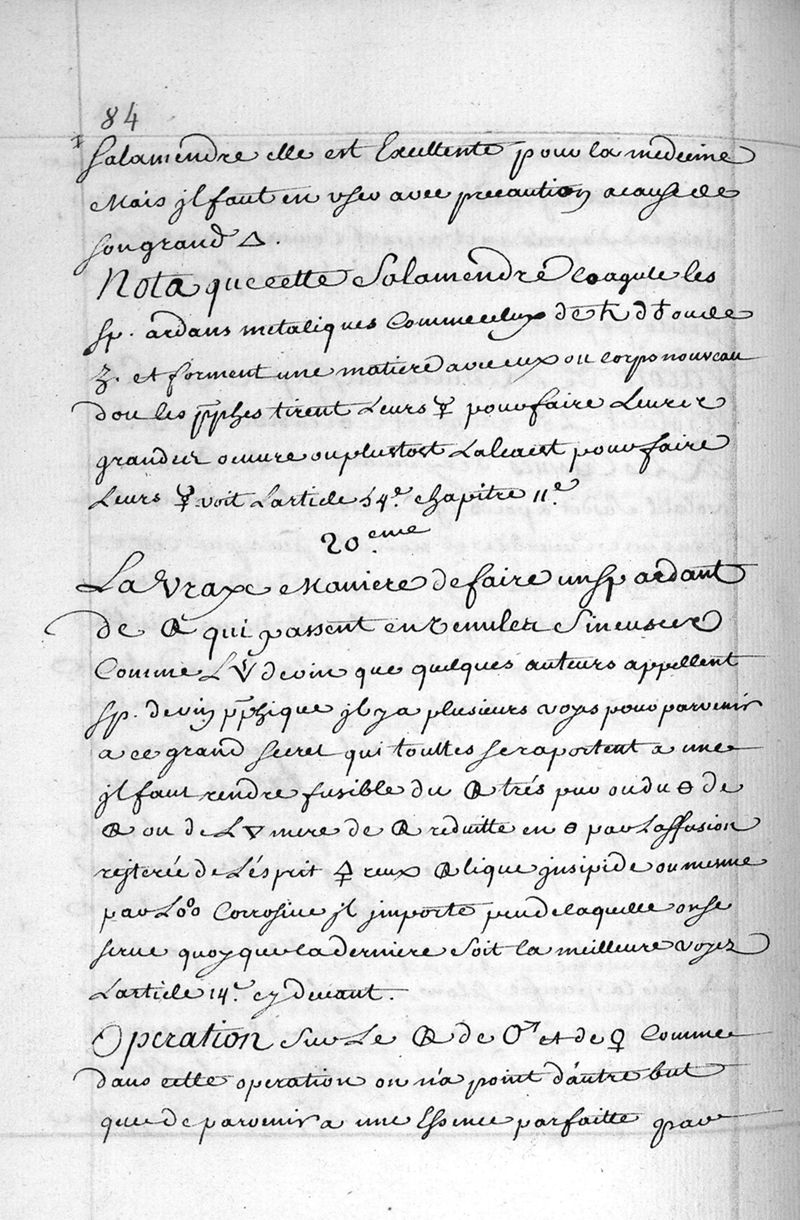 84
Salamendre elle est Excellente pour la medecine
Mais jl faut en vser avec precaution a cause de
son grand 🜂.
Nota que cette Salamendre coagule les
sp. ardans metaliques Comme celuy de ♄ d ♁ ou de
Z. et forment une matiere avec eux ou corps nouveau
dou les pphes tirent Leurs ☿ pour faire Leur
grand œuvre ou plustost Lalcaest pour faire
Leurs ☿ voit Larticle 54.e chapitre 11.e
20.eme
La Vraye Maniere de faire un sp ardant
de 🜨 qui passent
Comme L🜄 de vin que quelques auteurs appellent
sp. de vin pphique jl y a plusieurs voyes pour parvenir
a ce grand secret qui touttes se raportent a une
jl faut rendre fusible du trés pur ou du 🜔 de
ou de L🜄 mere de reduitte en 🜔 par Laffusion
rejterée de Lésprit 🜍 reux lique jnsipide ou mesme
par L°° Corrosive jl jmporte peu de laquelle on se
serve quoy que la derniere soit la meilleure voyez
Larticle 14.e cy devant.
Operation Sur Le de ♂ et de ♀ Comme
dans cette operation on n'a point dáutre but
que de parvenir a une Essence parfaitte par